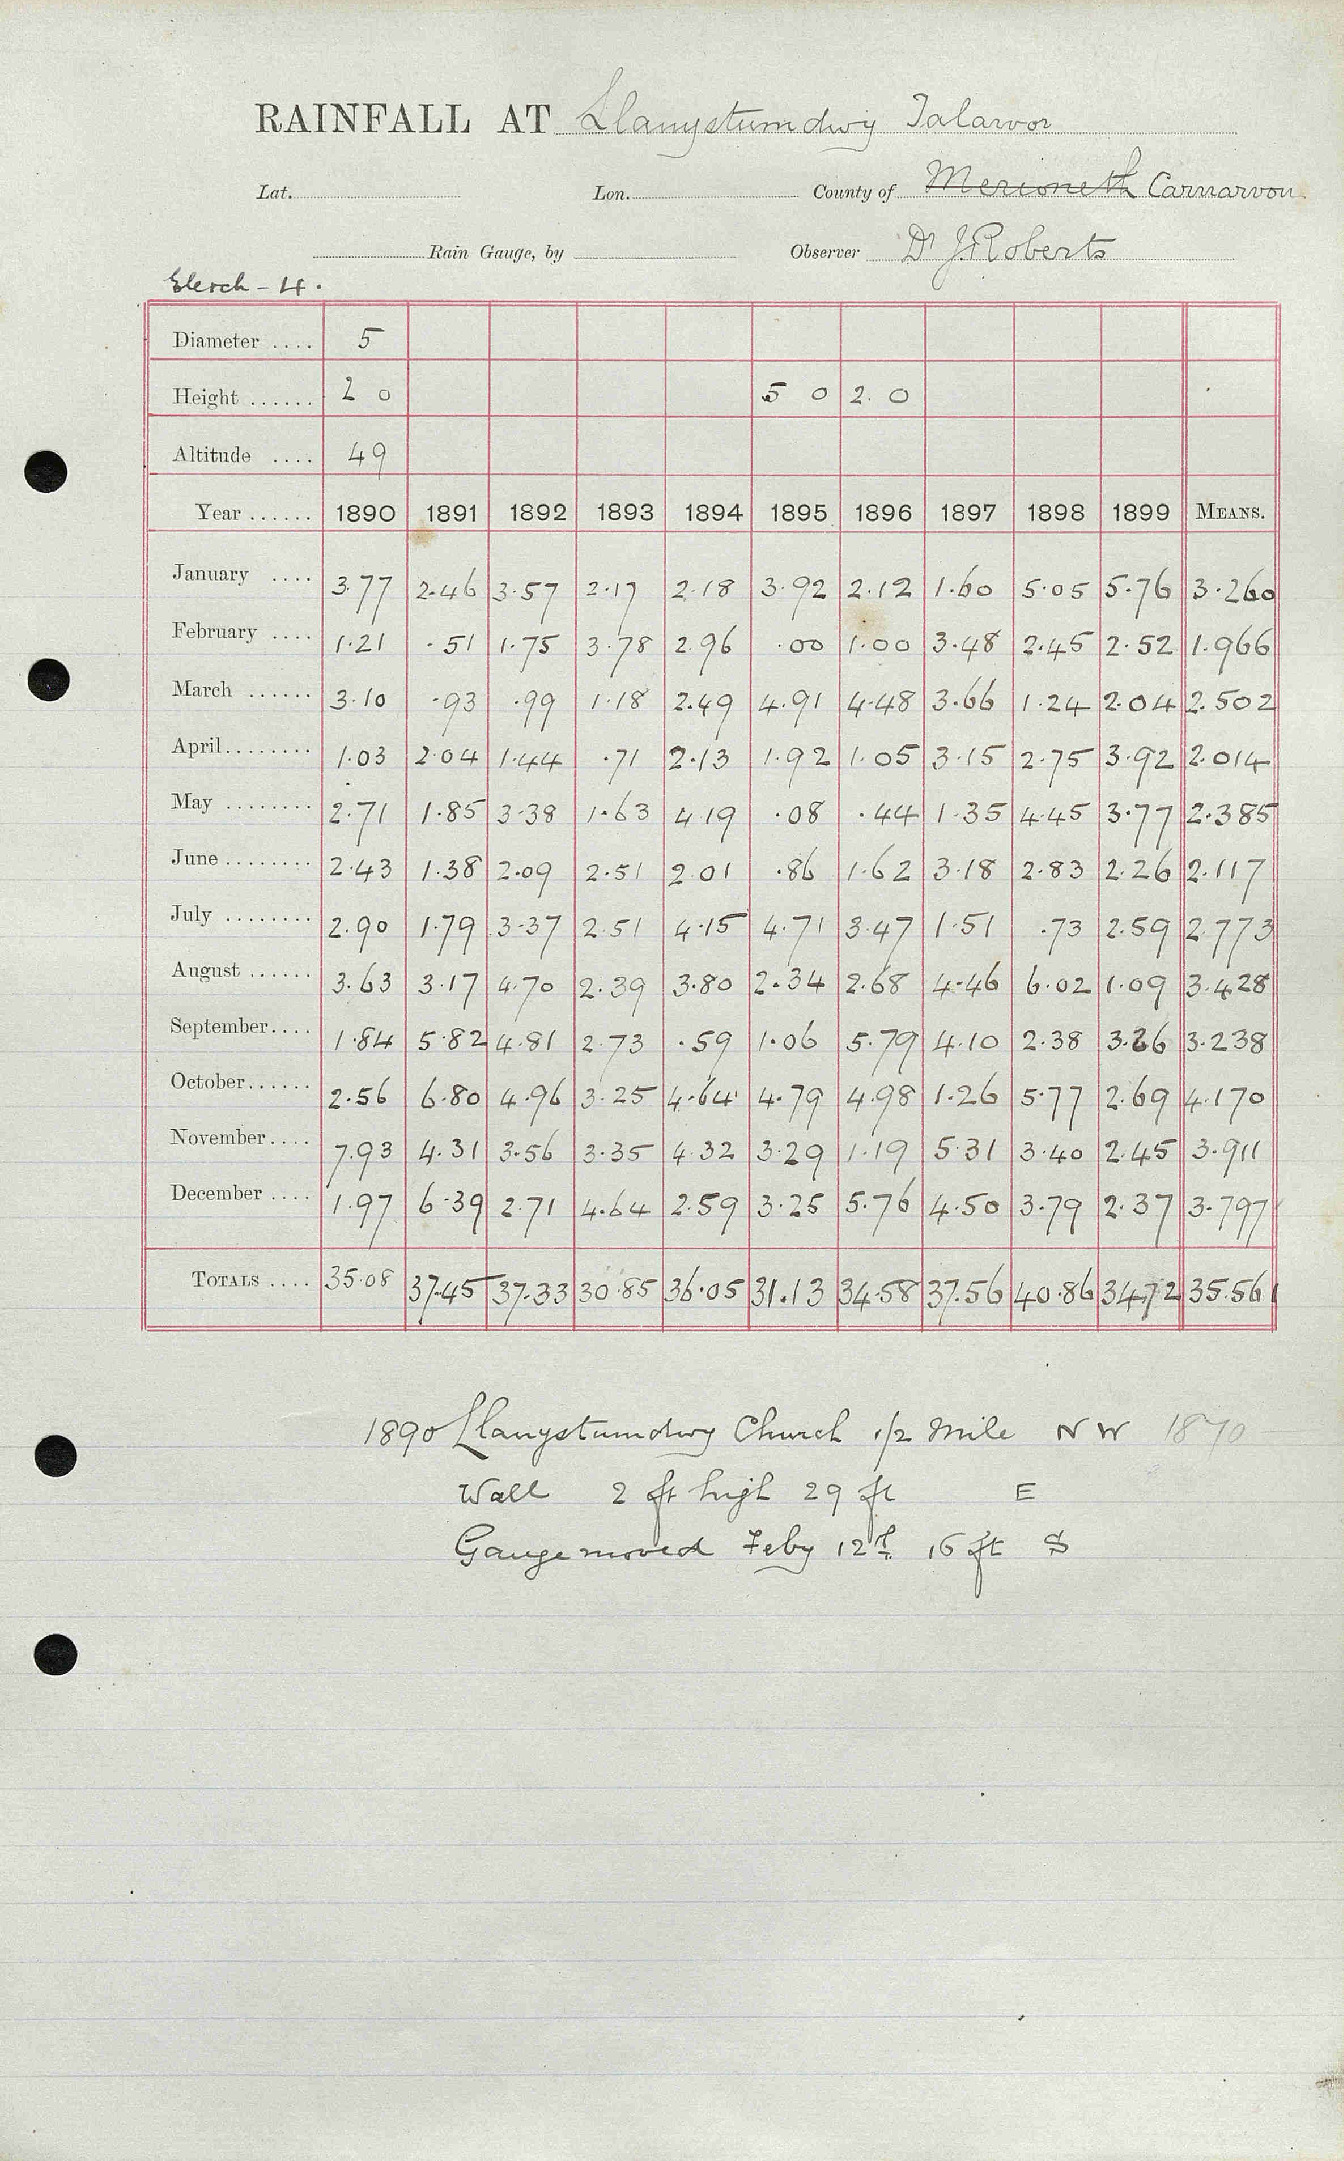 RAINFALL AT Llanystumdwy Talarvor
Lat. Lon. County of Merioneth Carnarvon
Rain Gauge, by Observer Dr J. Roberts
- 4.
Diameter .... 5
Height ...... 2 0 5 0 2 0
Altitude .... 49
Year ...... 1890 1891 1892 1893 1894 1895 1896 1897 1898 1899 MEANS.
January .... 3.77 2.46 3.57 2.17 2.18 3.92 2.12 1.60 5.05 5.76 3.260
February .... 1.21 .51 1.75 3.78 2.96 .00 1.00 3.48 2.45 2.52 1.966
March ...... 3.10 .93 .99 1.18 2.49 4.91 4.48 3.66 1.24 2.04 2.502
April ........ 1.03 2.04 1.44 .71 2.13 1.92 1.05 3.15 2.75 3.92 2.014
May ........ 2.71 1.85 3.38 1.63 4.19 .08 .44 1.35 4.45 3.77 2.385
June ........ 2.43 1.38 2.09 2.51 2.01 .86 1.62 3.18 2.83 2.26 2.117
July ........ 2.90 1.79 3.37 2.51 4.15 4.71 3.47 1.51 .73 2.59 2.773
August ...... 3.63 3.17 4.70 2.39 3.80 2.34 2.68 4.46 6.02 1.09 3.428
September .... 1.84 5.82 4.81 2.73 .59 1.06 5.79 4.10 2.38 3.26 3.238
October ...... 2.56 6.80 4.96 3.25 4.64 4.79 4.98 1.26 5.77 2.69 4.170
November .... 7.93 4.31 3.56 3.35 4.32 3.29 1.19 5.31 3.40 2.45 3.911
December .... 1.97 6.39 2.71 4.64 2.59 3.25 5.76 4.50 3.79 2.37 3.797
TOTALS .... 35.08 37.45 37.33 30.85 36.05 31.13 34.58 37.56 40.86 34.72 35.561
1890 Llanystumdwy Church 1/2 mile N W 1870
Wall 2 ft high 29 ft E
Gauge moved Feby 12th 16 ft S